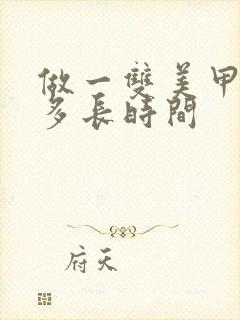 做一雙美甲
多長時間
府天